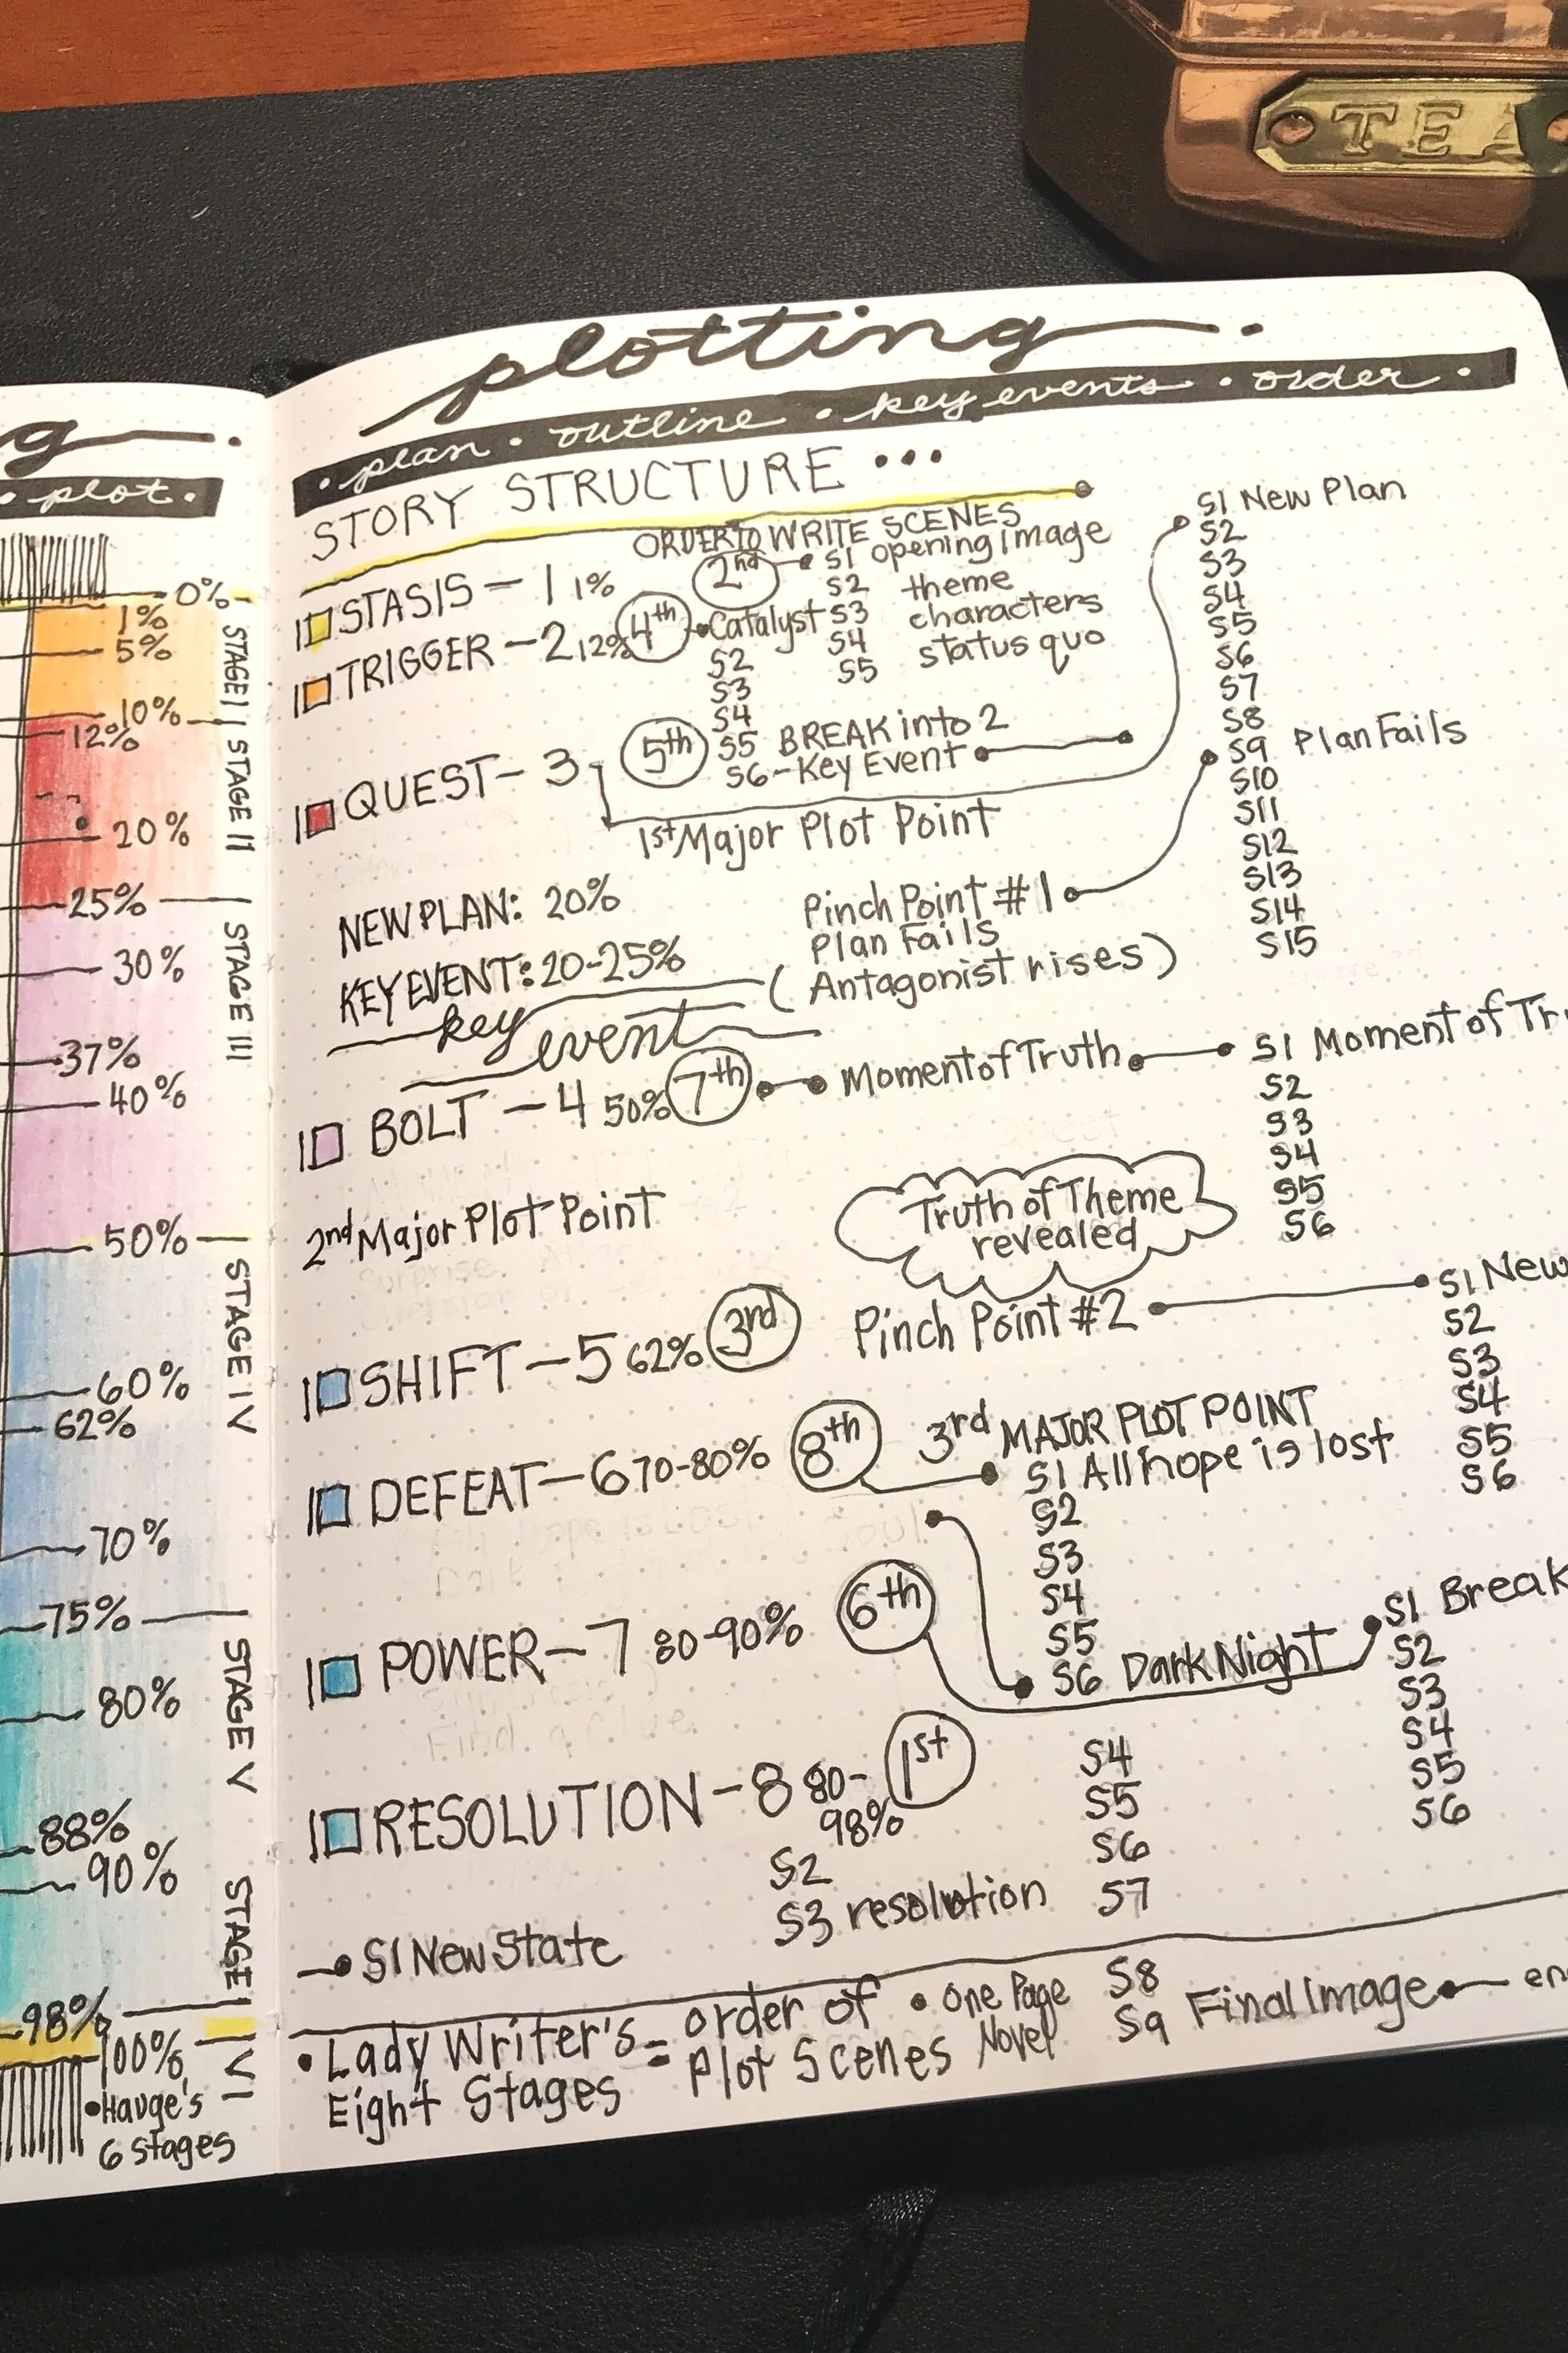 TEA
g
plot.
0%
1%
5%
10%
12%
20%
25%
30%
37%
40%
50%
60%
62%
70%
75%
80%
88%
90%
98%
100%
STAGE I
STAGE II
STAGE III
STAGE IV
STAGE V
STAGE
VI
•Hauge's
6 stages
plotting
• plan • outline • key events • order •
STORY STRUCTURE •••
ORDER TO WRITE SCENES
STASIS - 1 1% 2nd S1 opening image
S2 theme
TRIGGER - 2 12% 4th Catalyst S3 characters
S4 status quo
S5
S2
S3
S4
QUEST - 3 5th S5 BREAK into 2
S6 - Key Event
1st Major Plot Point
S1 New Plan
S2
S3
S4
S5
S6
S7
S8
S9 Plan Fails
S10
S11
S12
S13
S14
S15
NEW PLAN: 20%
KEY EVENT: 20-25%
key event
Pinch Point #1
Plan Fails
(Antagonist rises)
BOLT - 4 50% 7th Moment of Truth S1 Moment of Tr
S2
S3
S4
S5
S6
2nd Major Plot Point
Truth of Theme
revealed
SHIFT - 5 62% 3rd Pinch Point #2 S1 New
S2
S3
S4
S5
S6
DEFEAT - 6 70-80% 8th 3rd MAJOR PLOT POINT
S1 All hope is lost
S2
S3
S4
S5
S6 Dark Night
POWER - 7 80-90% 6th S1 Break
S2
S3
S4
S5
S6
Find a Clue
RESOLUTION - 8 80- 1st
98%
S1 New State
S2
S3 resolution
S4
S5
S6
S7
S8
S9 Final Image en
• Lady Writer's = order of • One Page
Eight Stages Plot Scenes Novel